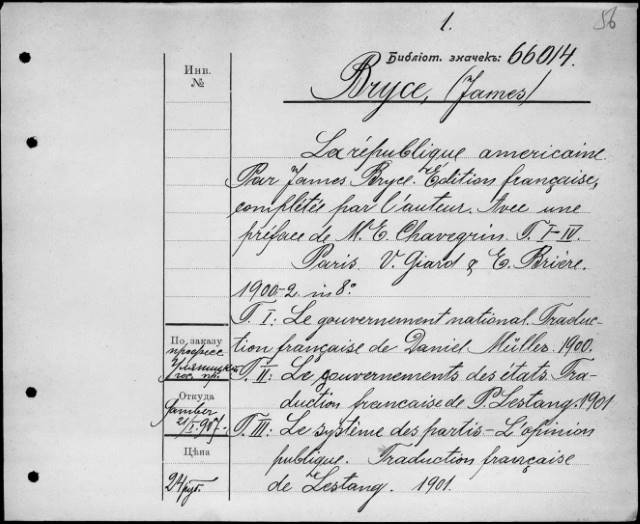 56
1.
Библіот. значекъ: 66014.
Bryce, (James)
Инв.
№
La république americaine.
Par James Bryce. Edition française,
complétée par l'auteur. Avec une
préface de M. E. Chavegrin. T. I-IV.
Paris. V. Giard & E. Brière.
1900-2 in 8°.
T. I: Le gouvernement national. Traduc-
tion française de Daniel Müller. 1900.
T. II: Le gouvernements des états. Tra-
duction francaise de P. Lestang. 1901
T. III: Le système des partis - L'opinion
publique. Traduction française
de Lestang. 1901.
По заказу
професс.
гос. пр.
Откуда
21/I 907.
Цѣна
24 руб.